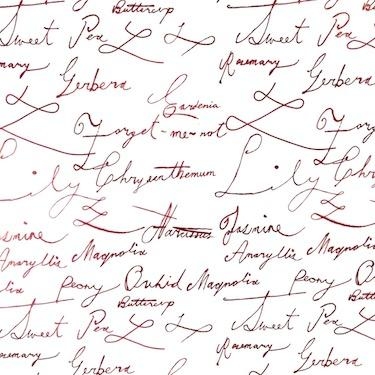 Buttercup
Sweet Pea Sweet Pea
Rosemary Rosemary
Gerbera Gerbera
Gardenia
Forget-me-not Forget
Lily Chrysanthemum Lily Chry
Jasmine Narcissus Jasmine
Amaryllis Magnolia Amaryllis Magnolia
olia Peony Orchid Magnolia Peony O
Buttercup Butterc
Sweet Pea Sweet Pea
Rosemary Rosemary
Gerbera Gerbera